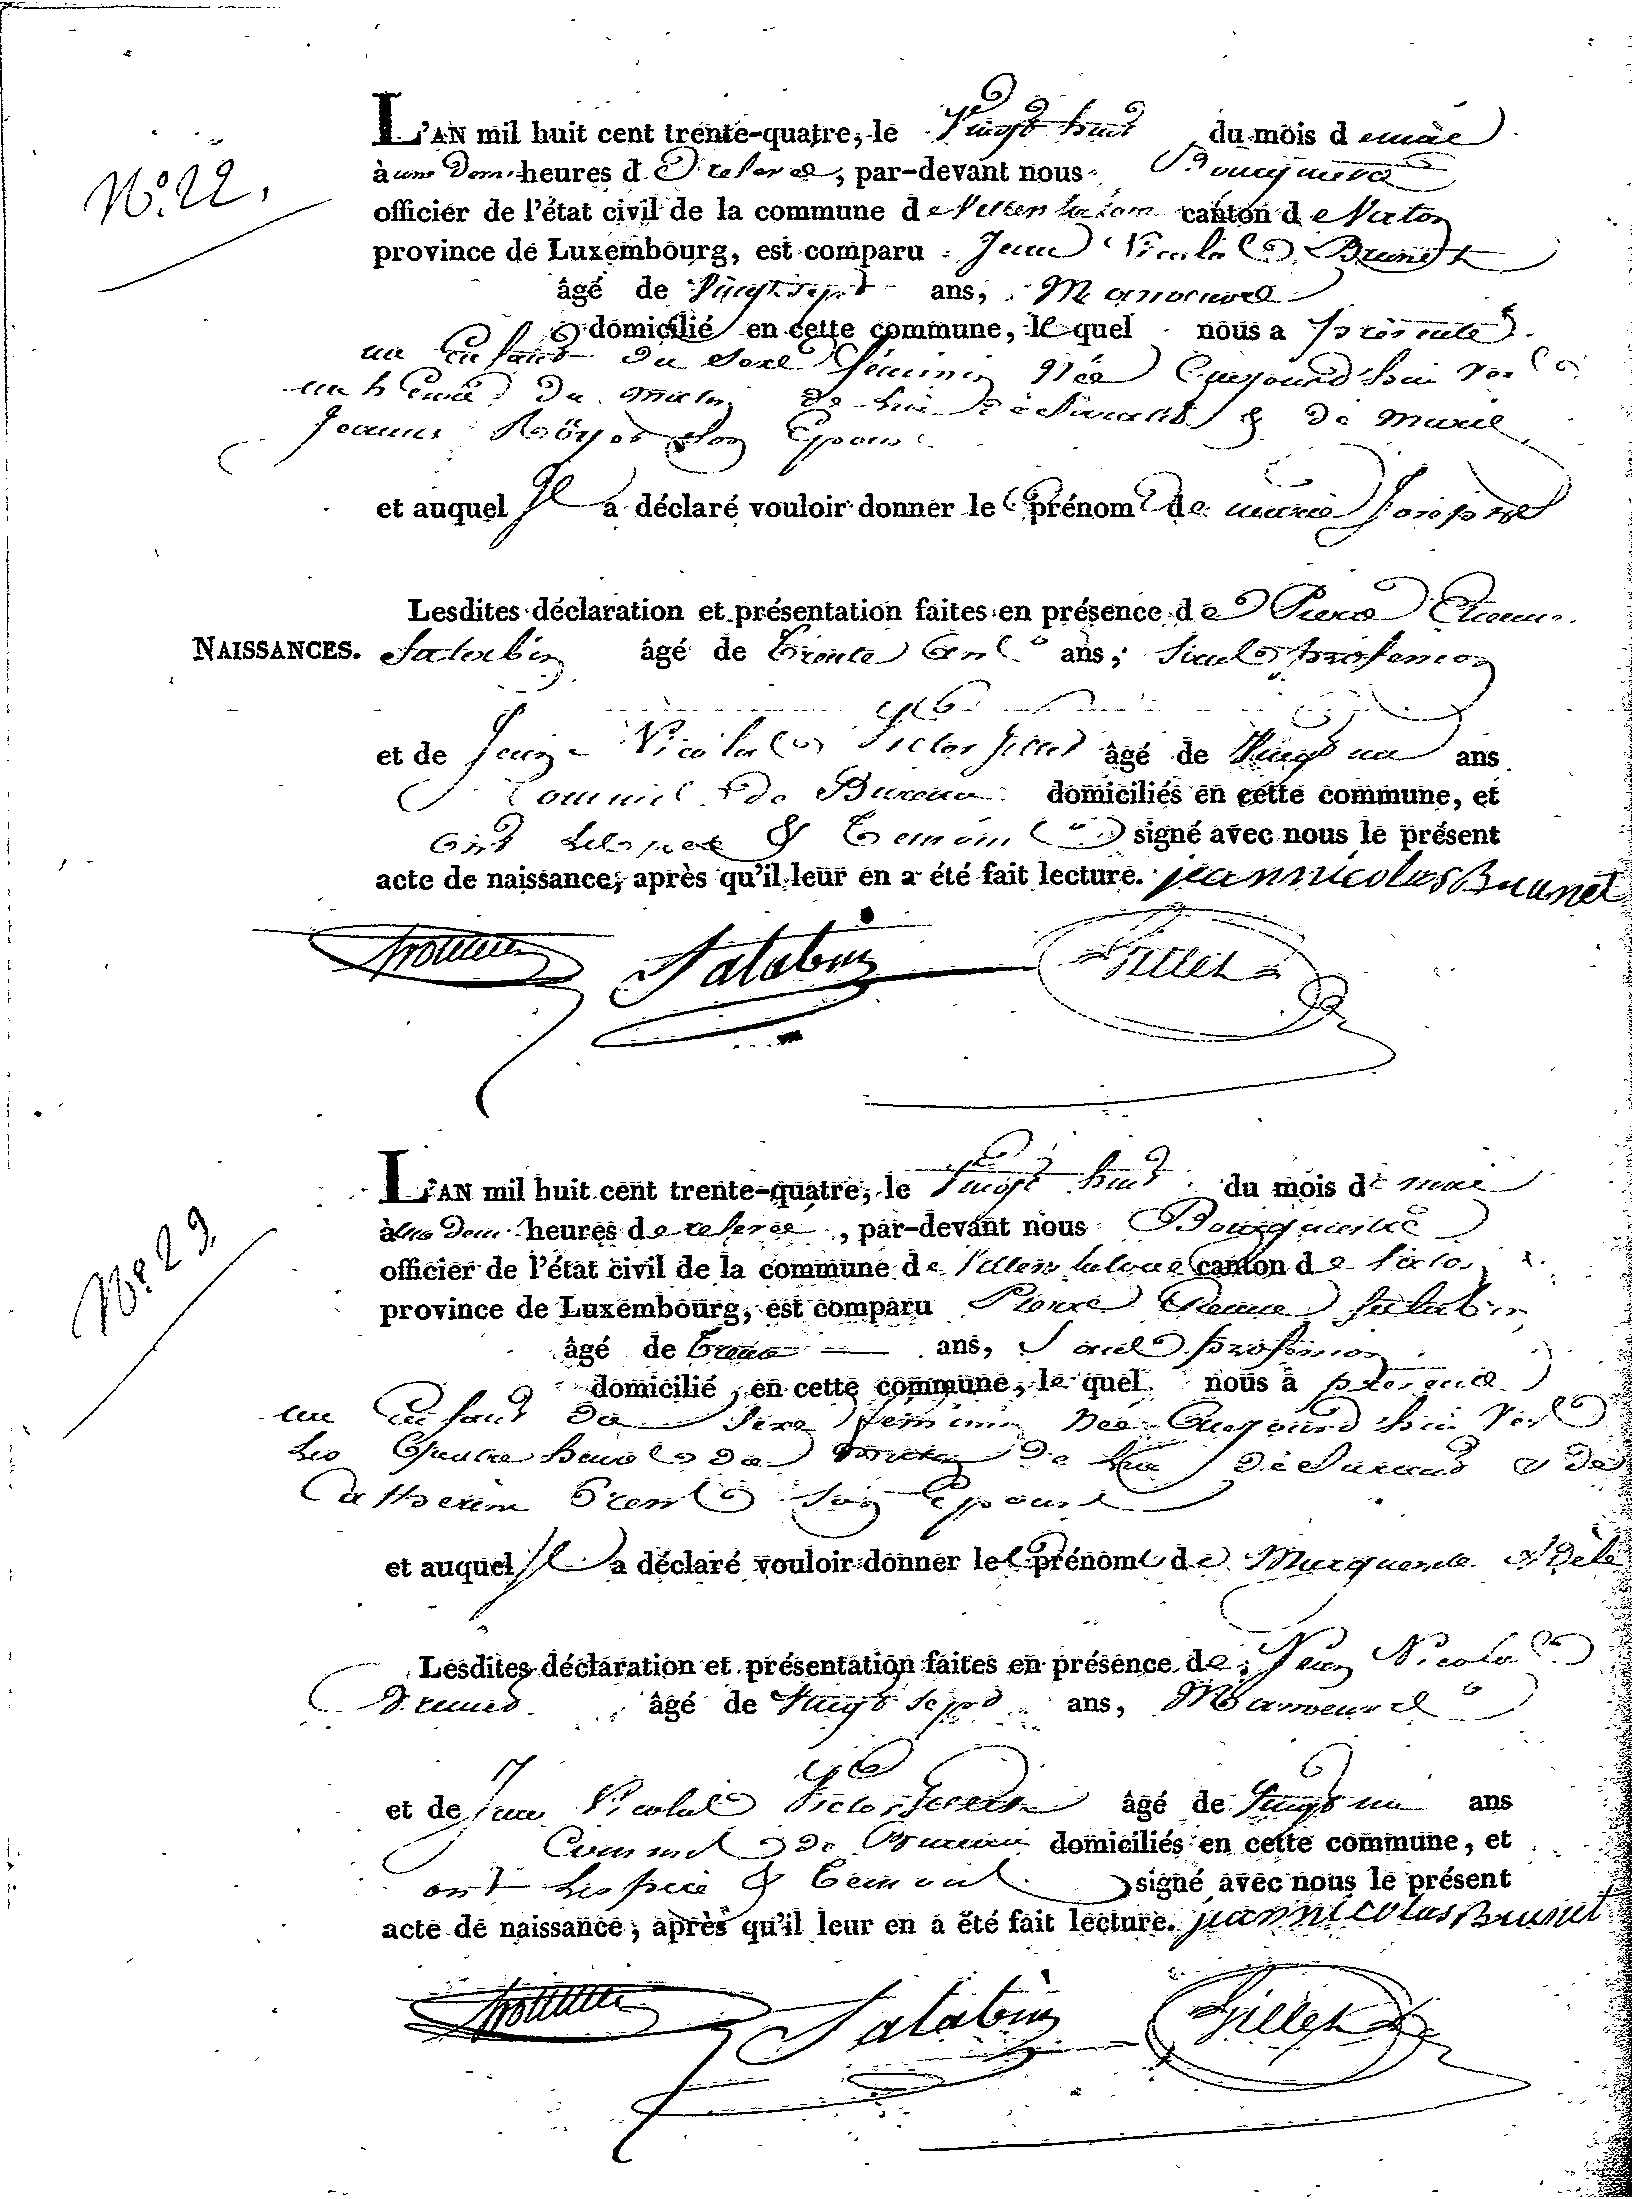 L'AN mil huit cent trente-quatre, le Vingt huit du mois de mai
N.º 22.
à une demi heures de relevée, par-devant nous
officier de l'état civil de la commune de canton de Virton
province de Luxembourg, est comparu Jean Nicolas Brunet
âgé de Vingt sept ans, Manoeuvre
domicilié en cette commune, le quel nous a présenté
un Enfant du sexe féminin née aujourd'hui vers
un heure du matin de lui déclarant & de marie
Jeanne son Epouse
et auquel Il a déclaré vouloir donner les prénoms de marie Josephe
Lesdites déclaration et présentation faites en présence de Pierre Etienne
NAISSANCES. Salabin âgé de Trente ans, sans profession
et de Jean Nicolas Victor Gillet âgé de Vingt un ans
Commis de Bureau domiciliés en cette commune, et
ont les père & Temoins signé avec nous le présent
acte de naissance, après qu'il leur en a été fait lecture. jean nicolas Brunet
Salabin Gillet
L'AN mil huit cent trente-quatre, le Vingt huit du mois de mai
N.º 23.
à une demi heures de relevée, par-devant nous
officier de l'état civil de la commune de canton de Virton
province de Luxembourg, est comparu Pierre Etienne Salabin
âgé de Trente ans, Sans profession
domicilié en cette commune, le quel nous a présenté
un Enfant du sexe feminin née aujourd'hui vers
les quatre heures du matin de lui déclarant & de
Catherine son Epouse
et auquel Il a déclaré vouloir donner les prénoms de Marguerite Adèle
Lesdites déclaration et présentation faites en présence de Jean Nicolas
Brunet âgé de Vingt sept ans, Manoeuvre
et de Jean Nicolas Victor Gillet âgé de Vingt un ans
Commis de Bureau domiciliés en cette commune, et
ont les père & Temoins signé avec nous le présent
acte de naissance, après qu'il leur en a été fait lecture. jean nicolas Brunet
Salabin Gillet